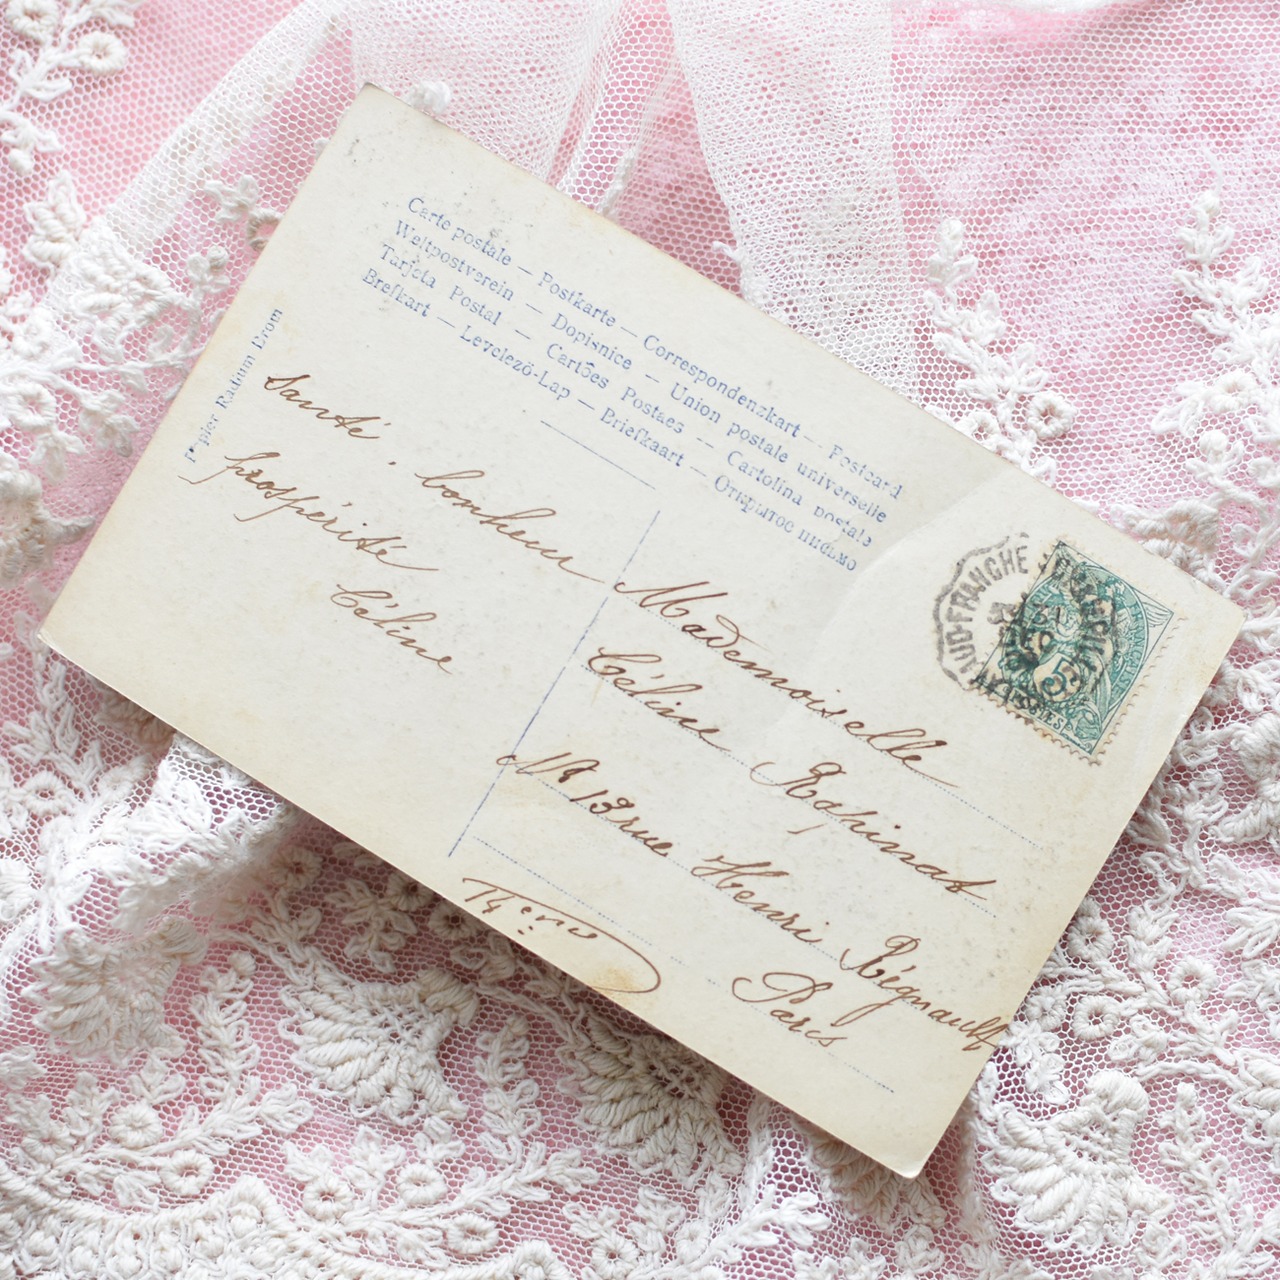 Carte postale — Postkarte — Correspondenzkart — Postcard
Weltpostverein — Dopisnice — Union postale universelle
Tarjeta Postal — Cartões Postaes — Cartolina postale
Brefkart — Levelező-Lap — Briefkaart — Открытое письмо
Papier Radium Drom
Santé, bonheur
prospérité
Céline
Mademoiselle
Céline Rapinat
13 rue Henri Régnault
Paris
14
FRANCHE
5